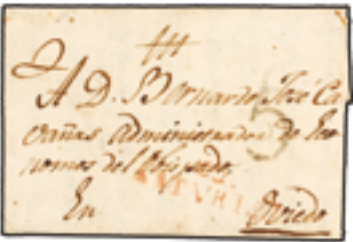 A D. Bernardo José Ca
vañas Administrador de
nomos del Obispado.
En Oviedo
5